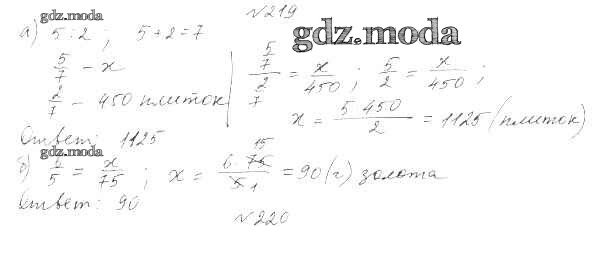 №219
gdz.moda
gdz.moda
а) 5:2 ; 5+2=7
5/7 – x
2/7 – 450 плиток
5/7 / 2/7 = x/450 ; 5/2 = x/450 ;
x = 5 450 / 2 = 1125 (плиток)
Ответ: 1125
gdz.moda
б) 6/5 = x/75 ; x = 6 75 15 / 5 1 = 90 (г) золота
Ответ: 90
№220